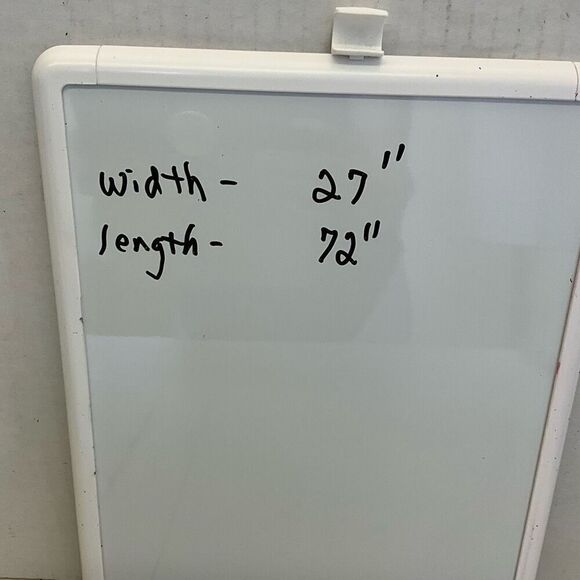 width - 27"
length - 72"